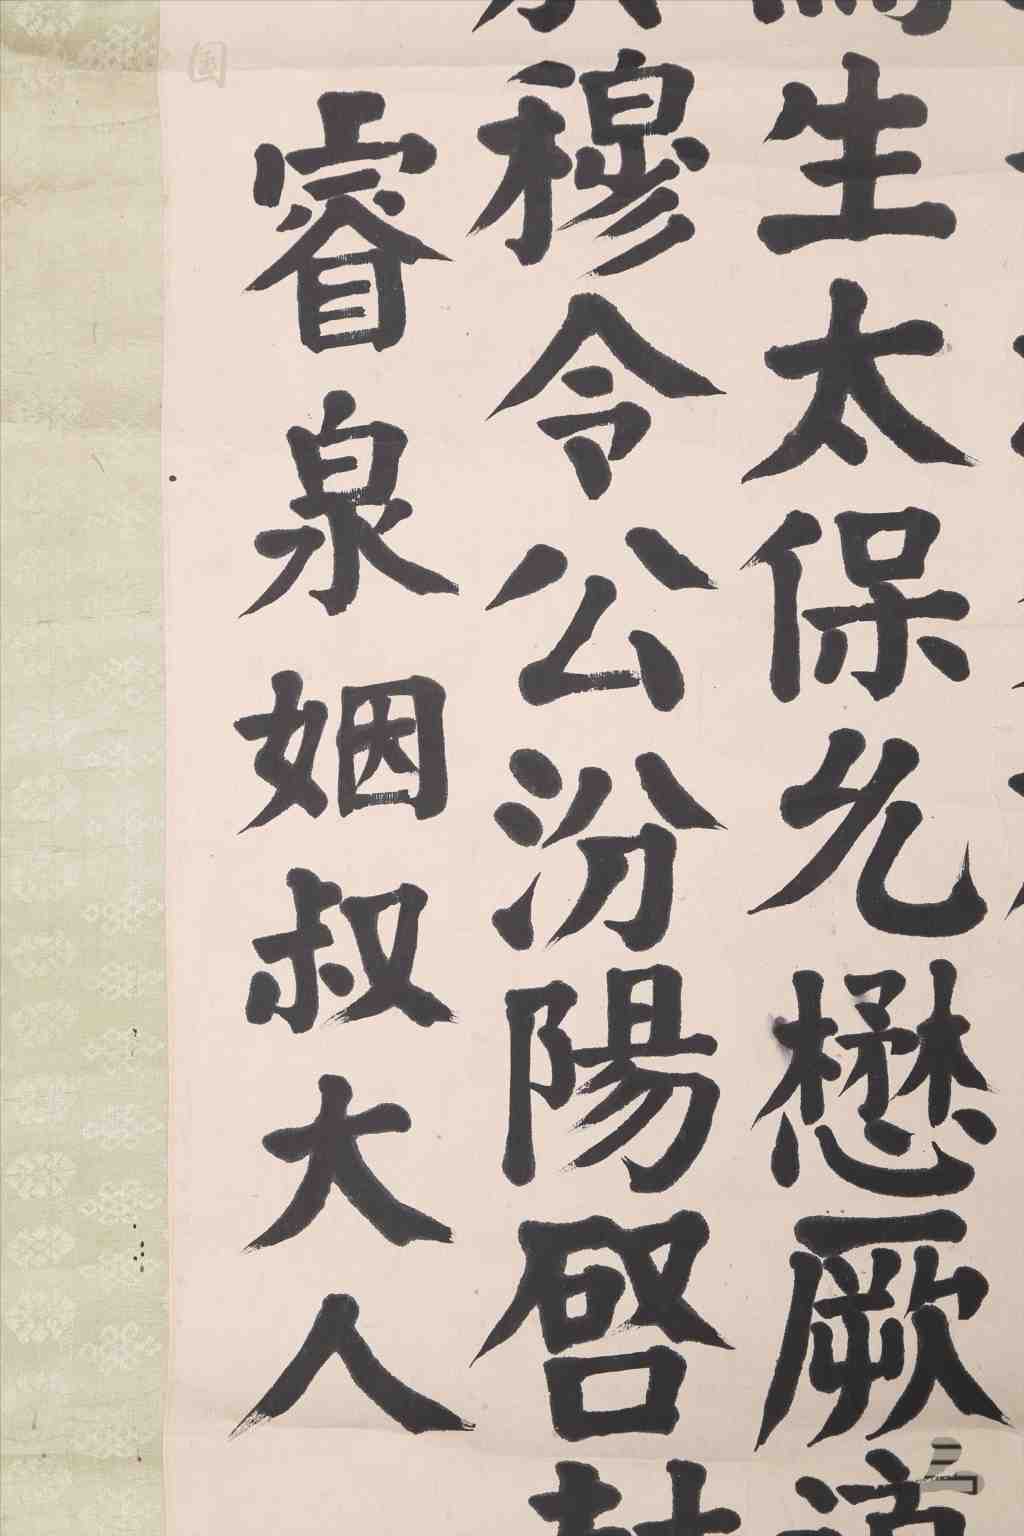 生太保允懋厥
穆令公汾陽啓
睿泉姻叔大人
国